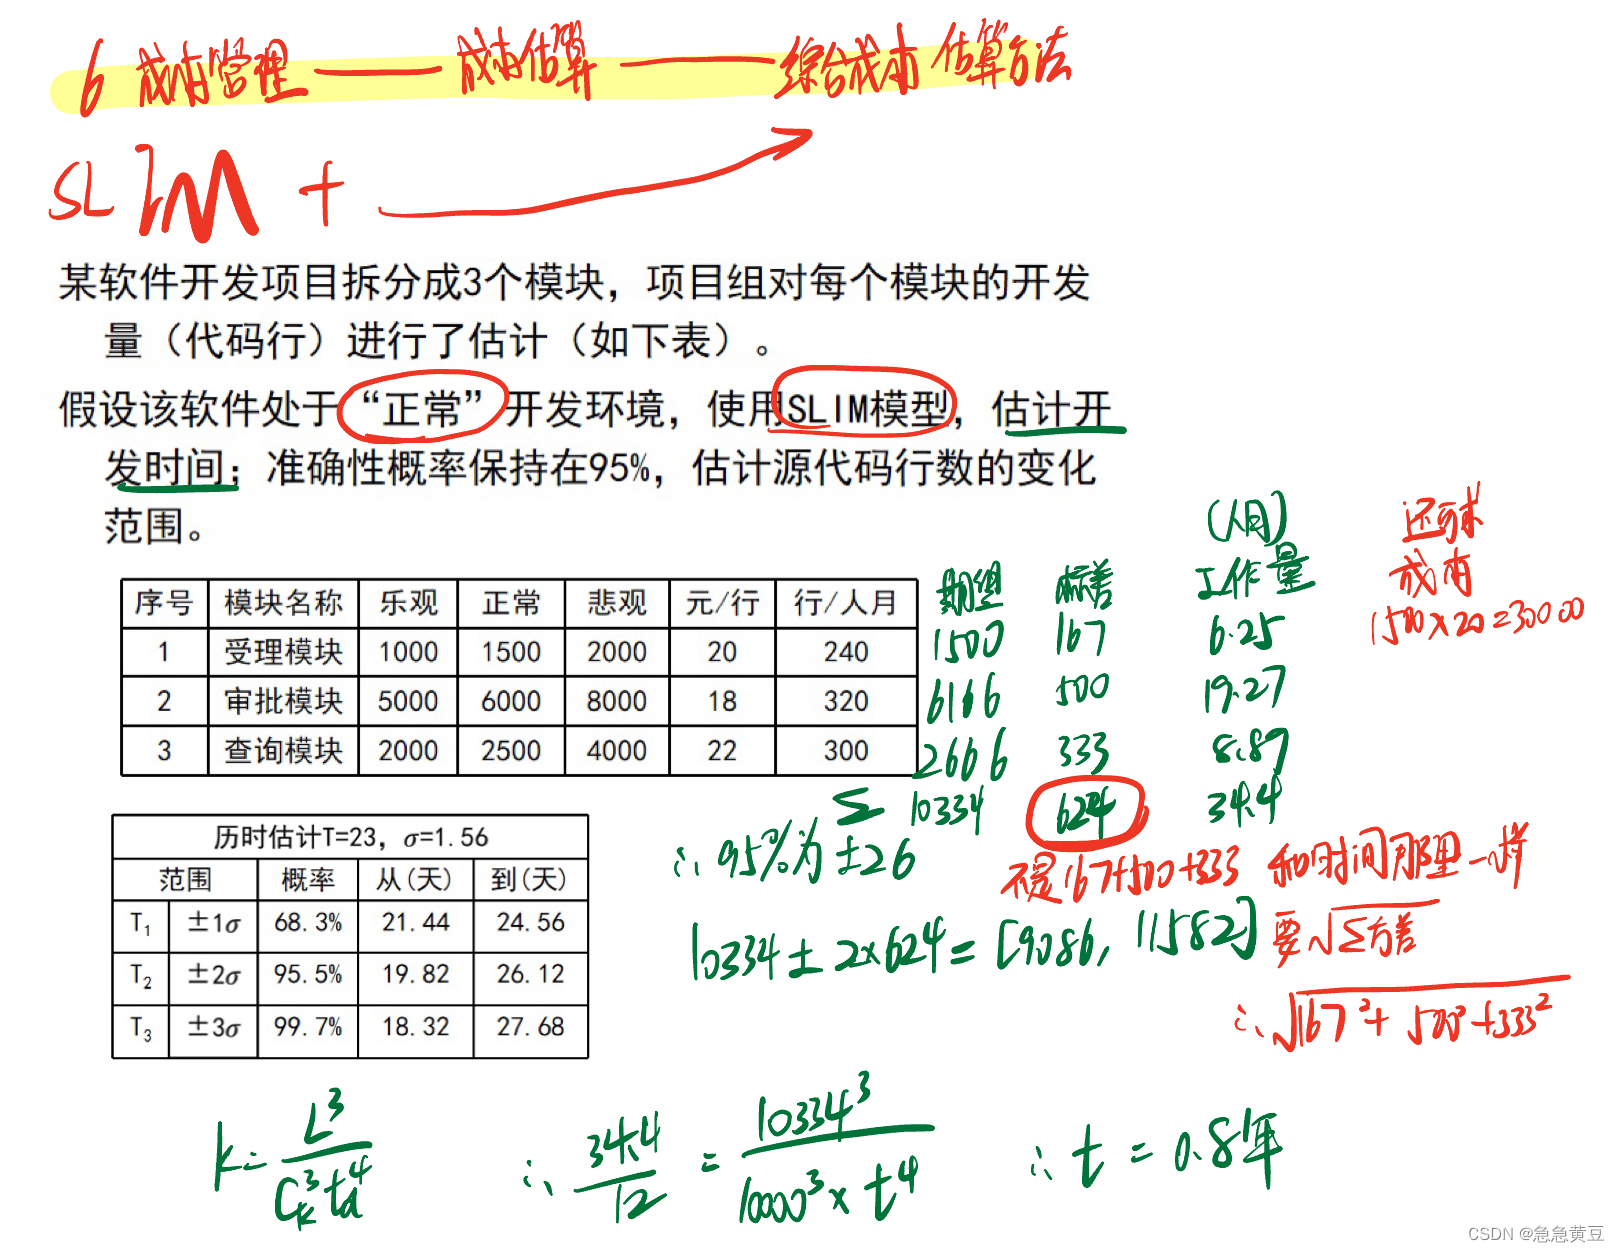 6 成本管理 —— 成本估算 —— 综合成本估算方法
SLIM +
某软件开发项目拆分成3个模块，项目组对每个模块的开发
量（代码行）进行了估计（如下表）。
假设该软件处于“正常”开发环境，使用SLIM模型，估计开
发时间；准确性概率保持在95%，估计源代码行数的变化
范围。
(人月) 还可求
序号 模块名称 乐观 正常 悲观 元/行 行/人月 期望 标差 工作量 成本
1 受理模块 1000 1500 2000 20 240 1500 167 6.25 1500×20=30000
2 审批模块 5000 6000 8000 18 320 6166 500 19.27
3 查询模块 2000 2500 4000 22 300 2666 333 8.89
Σ 10334 624 34.4
历时估计T=23，σ=1.56
范围 概率 从(天) 到(天)
T₁ ±1σ 68.3% 21.44 24.56
T₂ ±2σ 95.5% 19.82 26.12
T₃ ±3σ 99.7% 18.32 27.68
∴ 95%为±2σ
不是167+500+333 和时间那里一样
10334 ± 2×624 = [9086, 11582] 要√Σ方差
∴ √167²+500²+333²
k = L³/Cₖ³td⁴ ∴ 34.4/12 = 10334³/10000³×t⁴ ∴ t = 0.8年
CSDN @急急黄豆